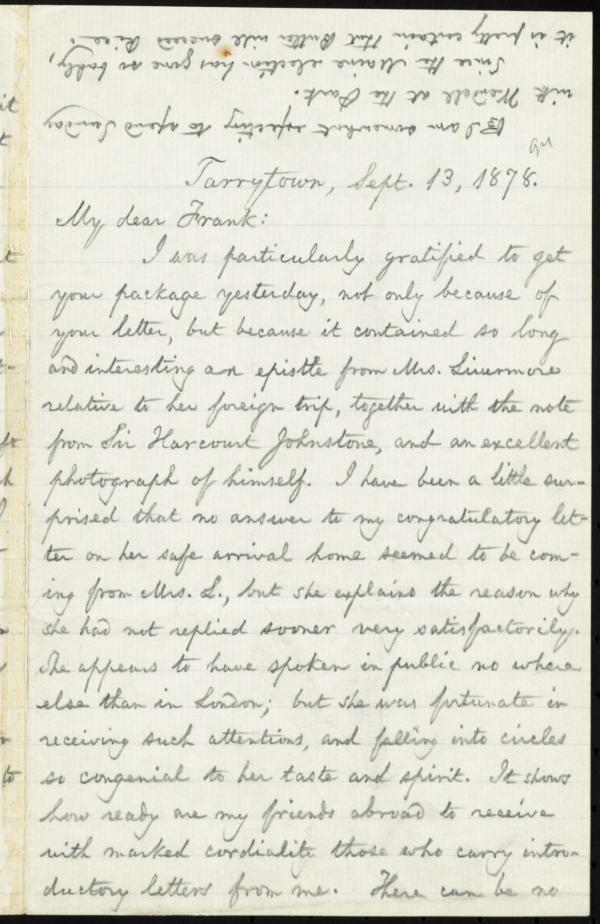 Tarrytown, Sept. 13, 1878.
My dear Frank:
I was particularly gratified to get
your package yesterday, not only because of
your letter, but because it contained so long
and interesting an epistle from Mrs. Livermore
relative to her foreign trip, together with the note
from Sir Harcourt Johnstone, and an excellent
photograph of himself. I have been a little sur-
prised that no answer to my congratulatory let-
ter on her safe arrival home seemed to be com-
ing from Mrs. L., but she explains the reason why
she had not replied sooner very satisfactorily.
She appears to have spoken in public no where
else than in London; but she was fortunate in
receiving such attentions, and falling into circles
so congenial to her taste and spirit. It shows
how ready are my friends abroad to receive
with marked cordialite those who carry intro-
ductory letters from me. There can be no
I am somewhat expecting to spend Sunday
with Wendell at the Park.
Since the Maine election has gone so badly,
it is pretty certain that Butler will succeed Rice.